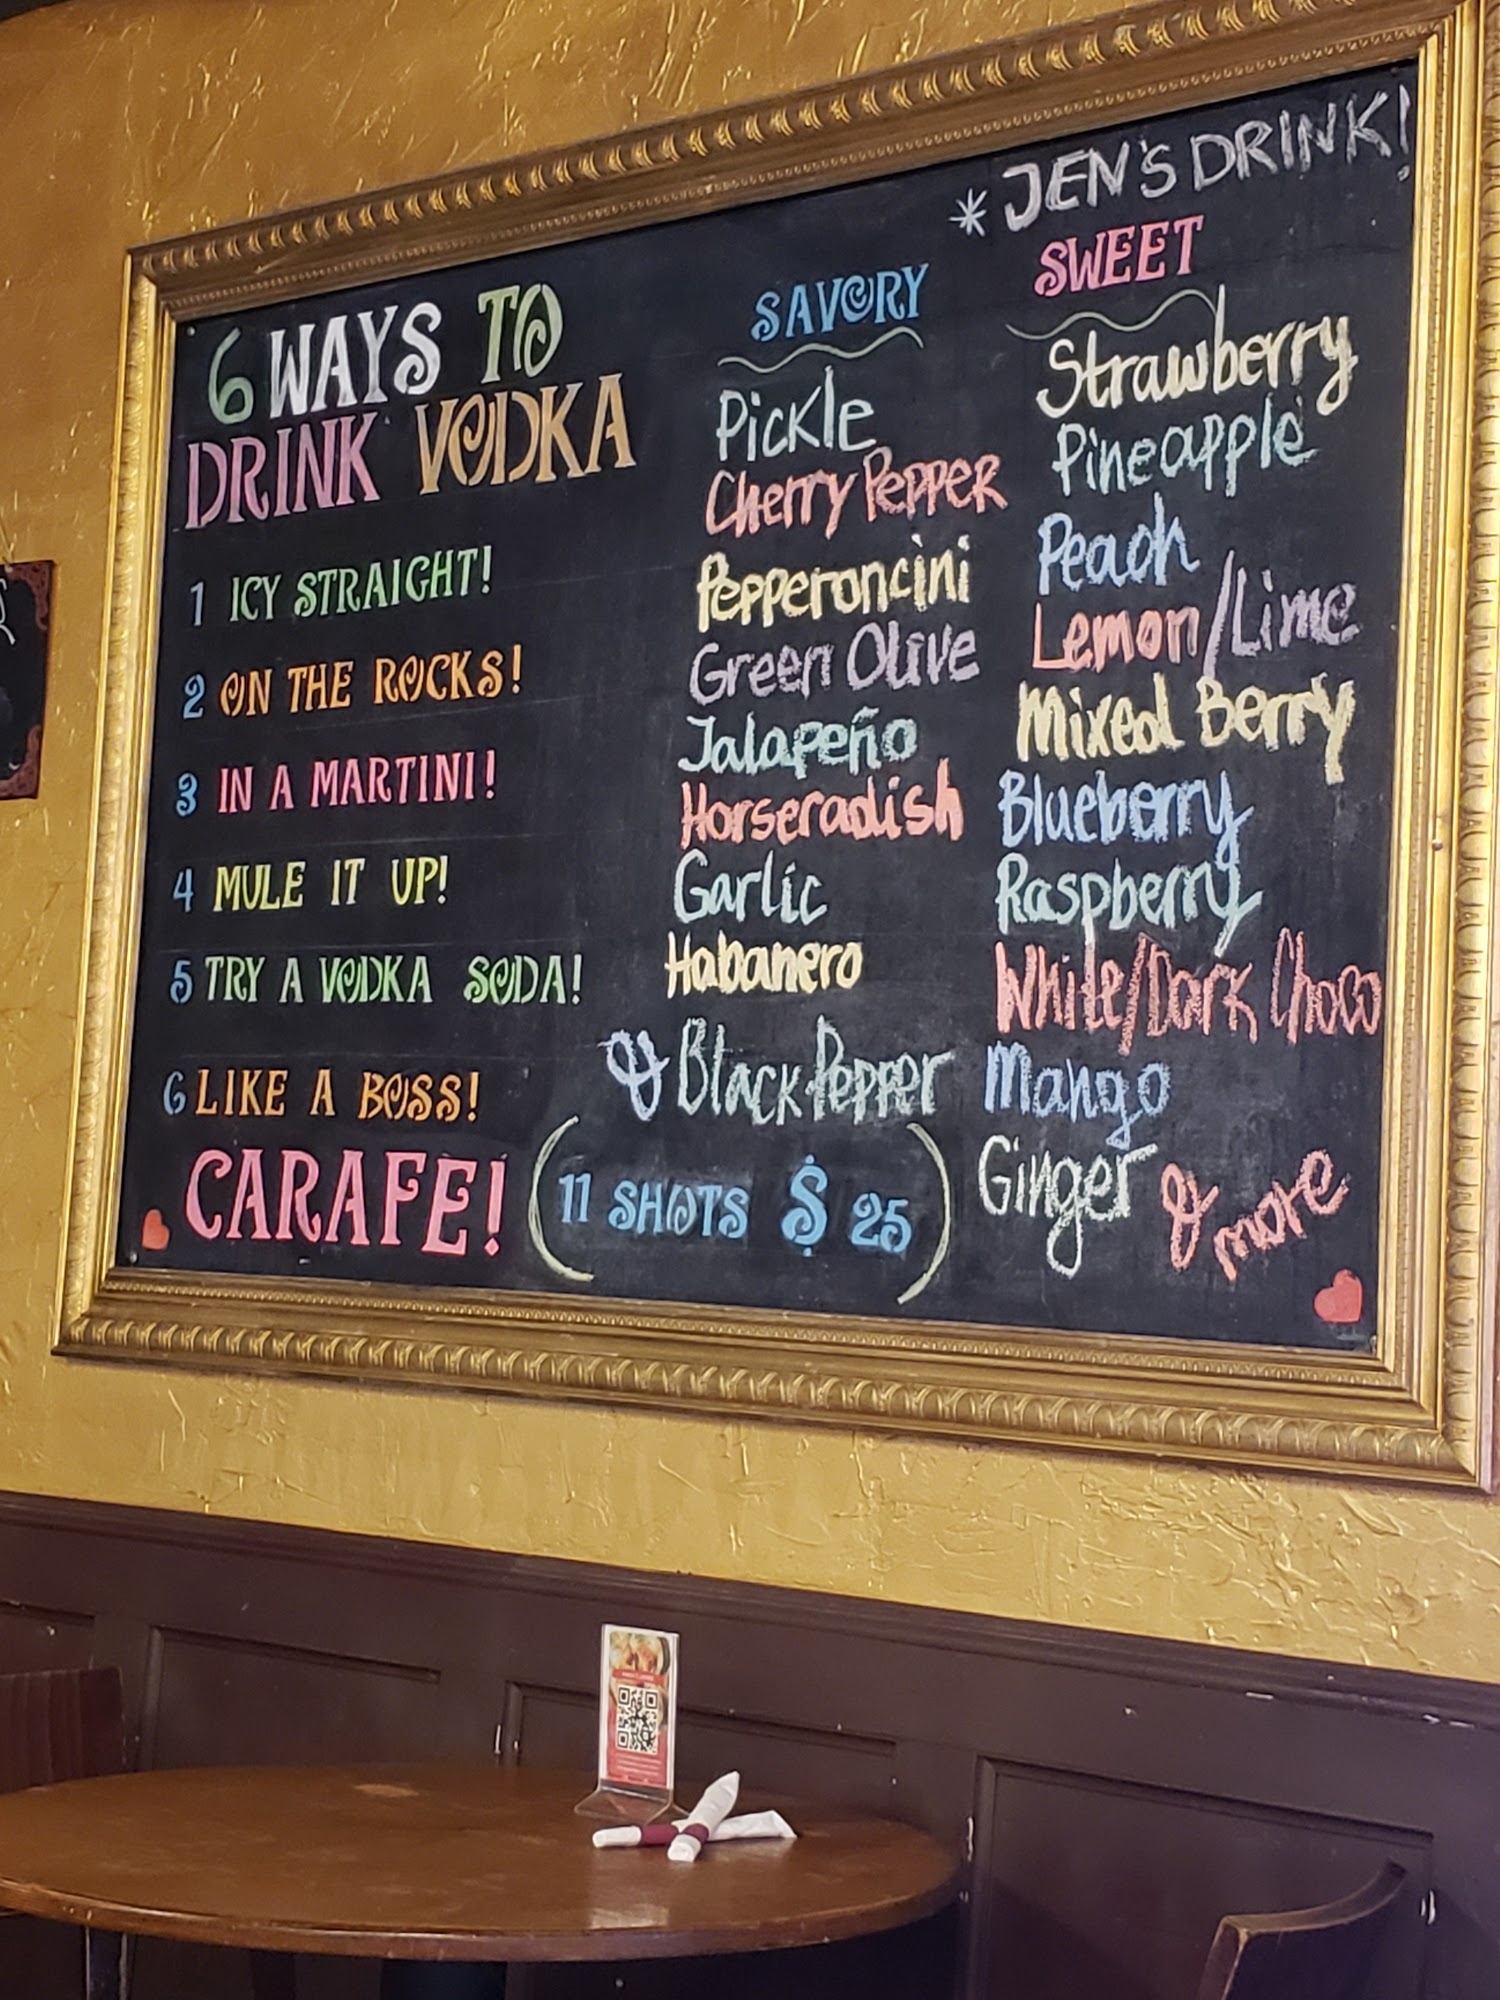 6 WAYS TO
DRINK VODKA
1 ICY STRAIGHT!
2 ON THE ROCKS!
3 IN A MARTINI!
4 MULE IT UP!
5 TRY A VODKA SODA!
6 LIKE A BOSS!
CARAFE! (11 SHOTS $ 25)
SAVORY
Pickle
Cherry Pepper
Pepperoncini
Green Olive
Jalapeño
Horseradish
Garlic
Habanero
& Black Pepper
* JEN'S DRINK!
SWEET
Strawberry
Pineapple
Peach
Lemon/Lime
Mixed Berry
Blueberry
Raspberry
White/Dark Choco
Mango
Ginger & more